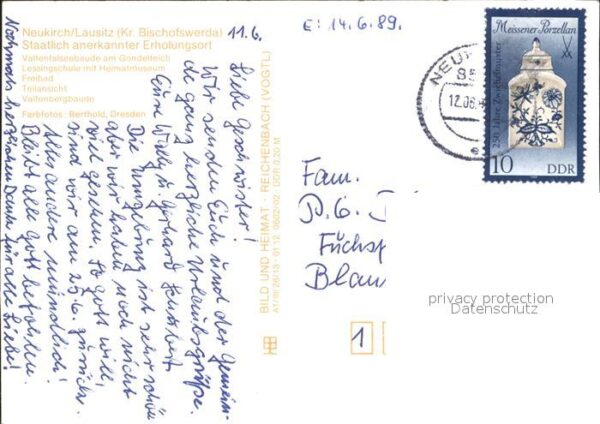 Neukirch/Lausitz (Kr. Bischofswerda)
Staatlich anerkannter Erholungsort
Valtenfalseebaude am Gondelteich
Lessingschule mit Heimatmuseum
Freibad
Teilansicht
Valtenbergbaude
Farbfotos: Berthold, Dresden
11.6.
Liebe Geschwister!
Wir senden Euch und der Gemein-
de ganz herzliche Urlaubsgrüße.
Eure Wally u. Gerhard
Die Umgebung ist sehr schön
aber wir haben noch nicht
viel gesehen. So Gott will,
sind wir am 25.6. zurück.
Alles andere mündlich!
Bleibt alle Gott befohlen.
Nochmals herzlichen Dank für alle Liebe!
BILD UND HEIMAT · REICHENBACH (VOGTL)
A1/III/26/13 · 01 12 0602/02 · DDR 0,20 M
E: 14.6.89.
Meissener Porzellan
250 Jahre Zwiebelmuster
10
DDR
NEU
12.06.
Fam.
P. G.
Füchsp
Blan
1
privacy protection
Datenschutz